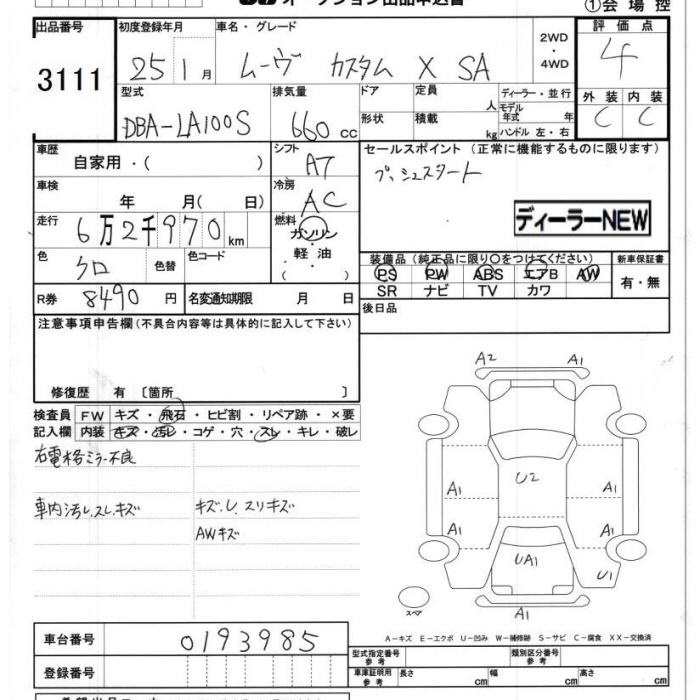 オークション出品申込書
①会場控
出品番号 初度登録年月 車名・グレード 2WD・4WD 評価点
3111 25 1月 ムーヴ カスタム X SA 4
型式 排気量 ドア 定員 人 ディーラー・並行 外装 内装
DBA-LA100S 660cc 形状 積載 kg モデル年式 年 ハンドル 左・右 C C
車歴 自家用・( ) シフト AT セールスポイント (正常に機能するものに限ります)
車検 年 月( 日) 冷房 AC プッシュスタート
走行 6万2千970km 燃料 ガソリン・軽油・( ) ディーラーNEW
色 クロ 色替 色コード 装備品(純正品に限り○をつけてください) 新車保証書
PS PW ABS エアB AW 有・無
R券 8490円 名変通知期限 月 日 SR ナビ TV カワ
注意事項申告欄(不具合内容等は具体的に記入して下さい) 後日品
修復歴 有 〔箇所 〕
検査員 FW キズ・飛石・ヒビ割・リペア跡・×要
記入欄 内装 キズ・汚レ・コゲ・穴・スレ・キレ・破レ
右電格ミラー不良
車内汚レ.スレ.キズ キズ.U.スリキズ
AWキズ
A2 A1
U2
A1 A1
A1 A1
UA1 U1
スペア
A1
A-キズ E-エクボ U-凹み W-補修跡 S-サビ C-腐食 XX-交換済
車台番号 0193985 型式指定番号 参考 類別区分番号 参考
登録番号 車庫証明用 参考 長さ cm 幅 cm 高さ cm